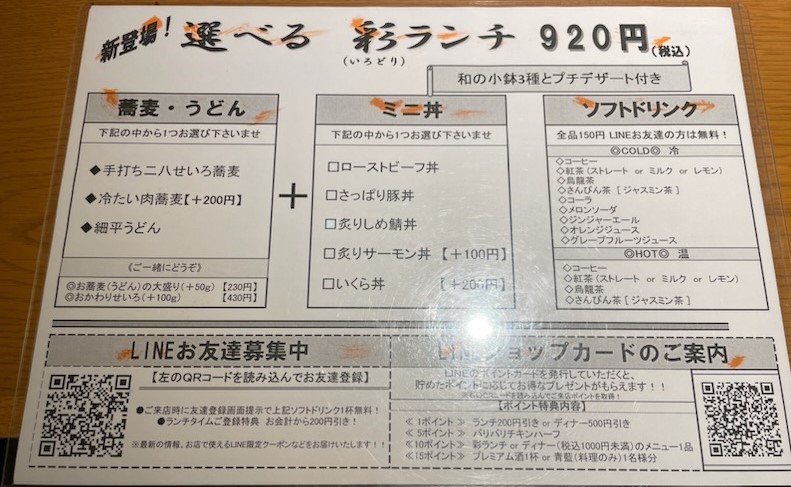 新登場! 選べる 彩ランチ 920円(税込)
(いろどり)
和の小鉢3種とプチデザート付き
蕎麦・うどん
下記の中から1つお選び下さいませ
◆手打ち二八せいろ蕎麦
◆冷たい肉蕎麦【+200円】
◆細平うどん
《ご一緒にどうぞ》
◎お蕎麦(うどん)の大盛り(+50g) 【230円】
◎おかわりせいろ(+100g) 【430円】
+
ミニ丼
下記の中から1つお選び下さいませ
□ローストビーフ丼
□さっぱり豚丼
□炙りしめ鯖丼
□炙りサーモン丼 【+100円】
□いくら丼 【+200円】
ソフトドリンク
全品150円 LINEお友達の方は無料!
◎COLD◎ 冷
◇コーヒー
◇紅茶(ストレート or ミルク or レモン)
◇烏龍茶
◇さんぴん茶[ジャスミン茶]
◇コーラ
◇メロンソーダ
◇ジンジャーエール
◇オレンジジュース
◇グレープフルーツジュース
◎HOT◎ 温
◇コーヒー
◇紅茶(ストレート or ミルク or レモン)
◇烏龍茶
◇さんぴん茶[ジャスミン茶]
LINEお友達募集中
【左のQRコードを読み込んでお友達登録】
●ご来店時に友達登録画面提示で上記ソフトドリンク1杯無料!
●ランチタイムご登録特典 お会計から200円引き!
※最新の情報、お店で使えるLINE限定クーポンなどをお届けいたします!!
LINEショップカードのご案内
LINEのポイントカードを発行していただくと、
貯めたポイントに応じてお得なプレゼントがもらえます!!
【ポイント特典内容】
≪ 1ポイント ≫ ランチ200円引き or ディナー500円引き
≪ 5ポイント ≫ パリパリチキンハーフ
≪10ポイント≫ 彩ランチ or ディナー(税込1000円未満)のメニュー1品
≪15ポイント≫ プレミアム酒1杯 or 青藍(料理のみ)1名様分